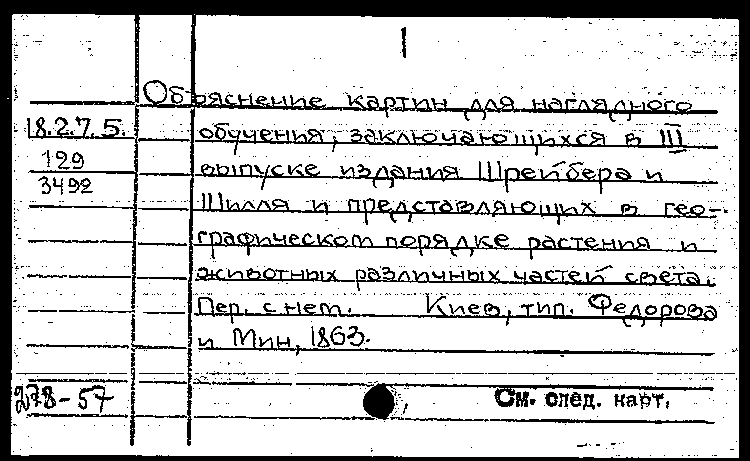 Объяснение картин для наглядного
18.2.7.5. обучения, заключающихся в III
129 выпуске издания Шрейбера и
3492 Шилля и представляющих в гео-
графическом порядке растения и
животных различных частей света.
Пер. с нем. Киев, тип. Федорова
и Мин, 1863.
278-57 См. след. карт.